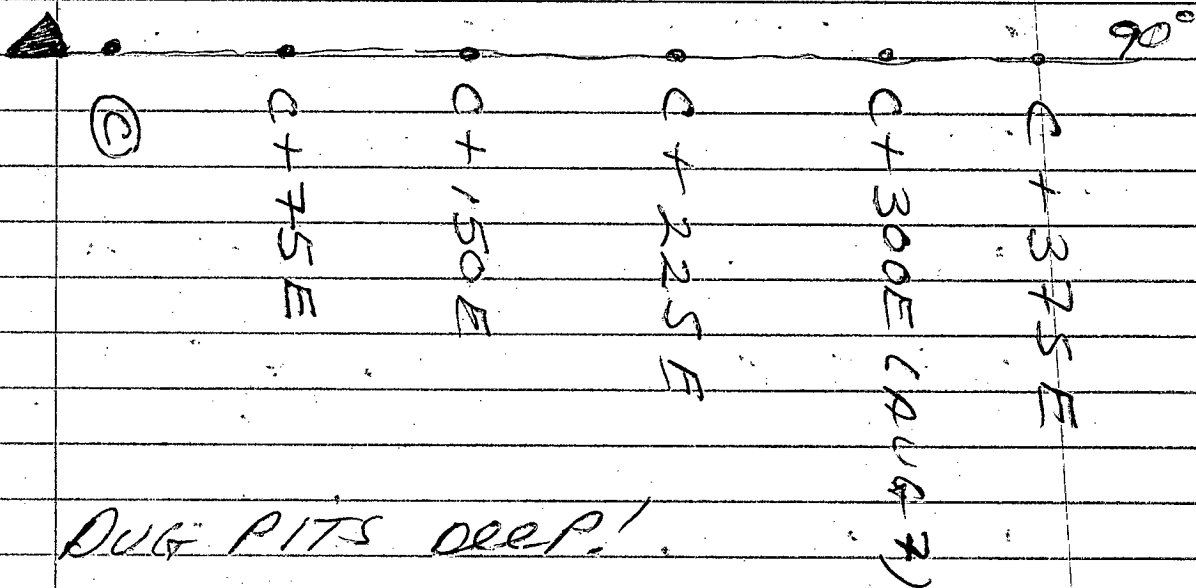 90°
C
C+75E
C+150E
C+225E
C+300E (AUG 7)
C+375E
DUG PITS DEEP!